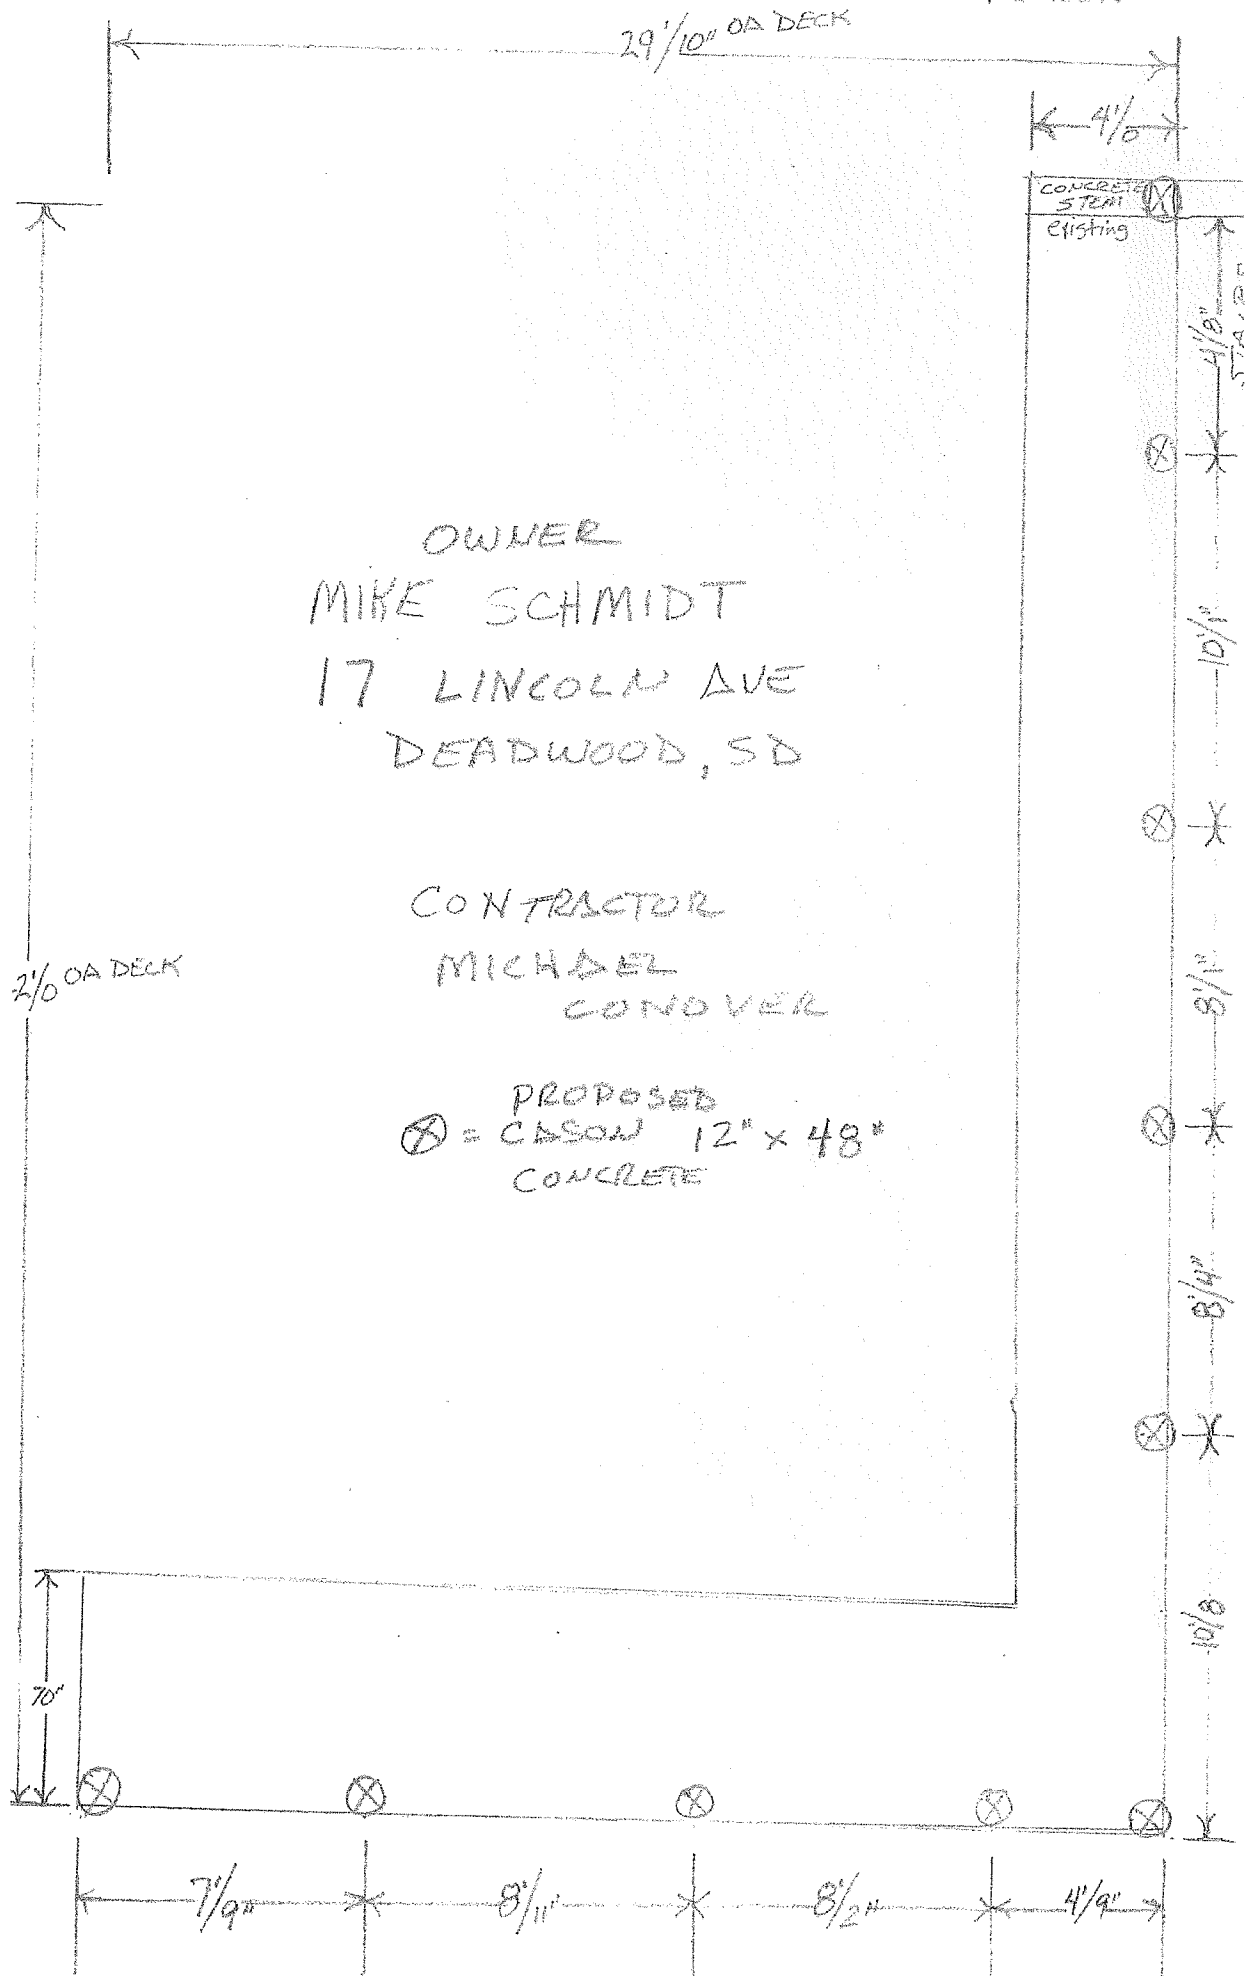 29'/10" OA DECK
4'/0
CONCRETE
STEM
existing
4'/8"
10'/1"
OWNER
MIKE SCHMIDT
17 LINCOLN AVE
DEADWOOD, SD
CONTRACTOR
MICHAEL
CONOVER
2'/0 OA DECK
8'/1"
PROPOSED
= CASON 12" x 48"
CONCRETE
8'/4"
10'/8
70"
7'/9"
8'/11"
8'/2"
4'/9"